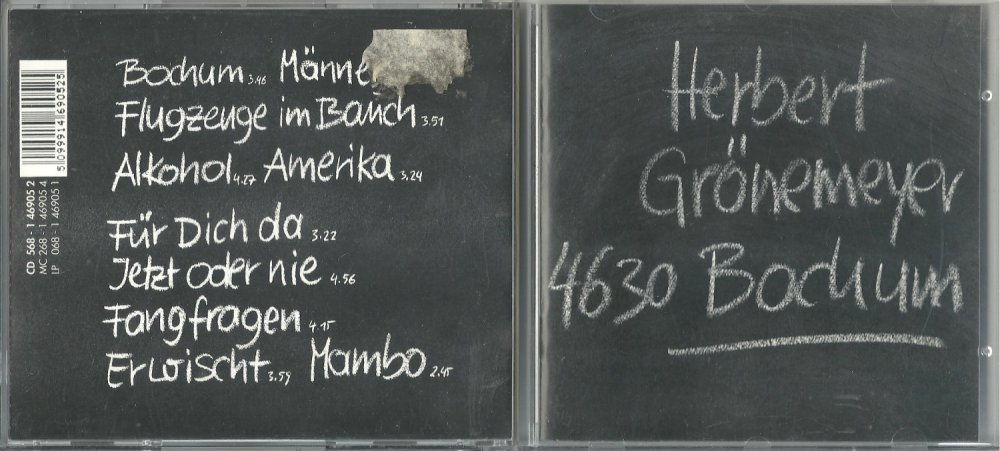 Bochum 3.46 Männe
Flugzeuge im Bauch 3.51
Alkohol 4.27 Amerika 3.24
Für Dich da 3.22
Jetzt oder nie 4.56
Fangfragen 4.15
Erwischt 3.59 Mambo 2.45
5 099914 690525
CD 568 - 1 46905 2
MC 268 - 1 46905 4
LP 068 - 1 46905 1
Herbert
Grönemeyer
4630 Bochum